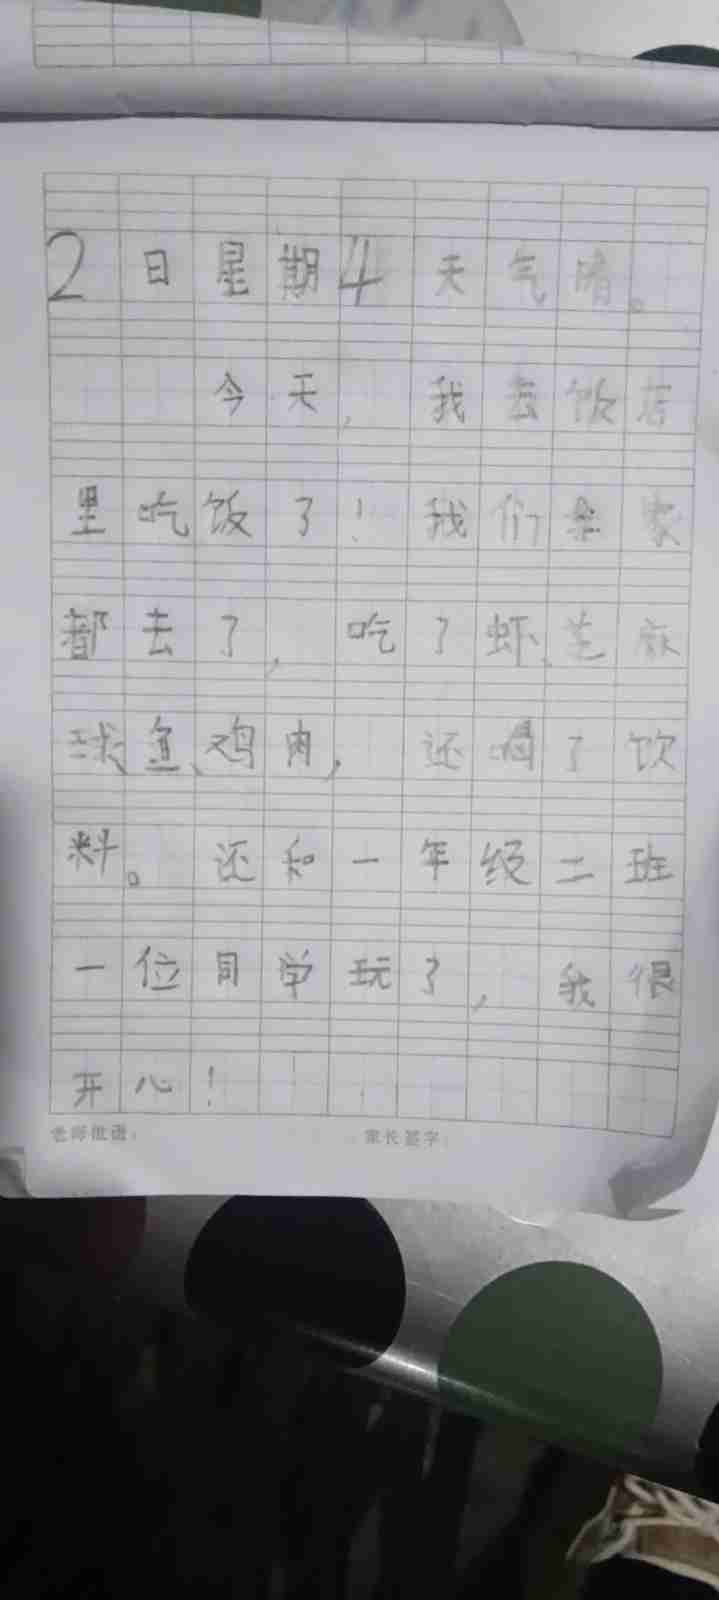 2日星期4天气晴。
今天，我去饭店
里吃饭了！我们全家
都去了，吃了虾、芝麻
球、鱼、鸡肉，还喝了饮
料。还和一年级二班
一位同学玩了，我很
开心！
老师批语： 家长签字：